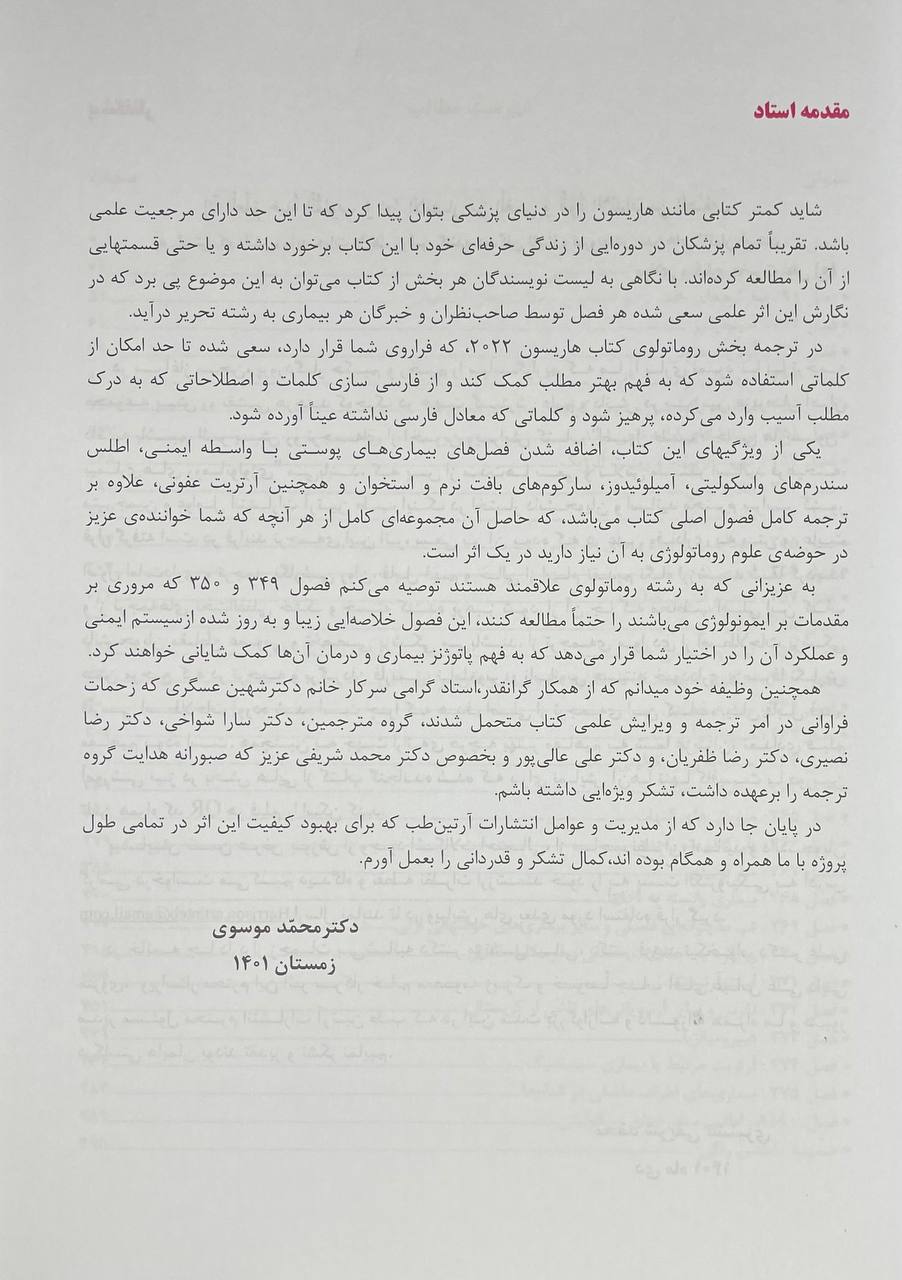 مقدمه استاد
شاید کمتر کتابی مانند هاریسون را در دنیای پزشکی بتوان پیدا کرد که تا این حد دارای مرجعیت علمی
باشد. تقریباً تمام پزشکان در دوره‌ایی از زندگی حرفه‌ای خود با این کتاب برخورد داشته و یا حتی قسمتهایی
از آن را مطالعه کرده‌اند. با نگاهی به لیست نویسندگان هر بخش از کتاب می‌توان به این موضوع پی برد که در
نگارش این اثر علمی سعی شده هر فصل توسط صاحب‌نظران و خبرگان هر بیماری به رشته تحریر درآید.
در ترجمه بخش روماتولوی کتاب هاریسون ۲۰۲۲، که فراروی شما قرار دارد، سعی شده تا حد امکان از
کلماتی استفاده شود که به فهم بهتر مطلب کمک کند و از فارسی سازی کلمات و اصطلاحاتی که به درک
مطلب آسیب وارد می‌کرده، پرهیز شود و کلماتی که معادل فارسی نداشته عیناً آورده شود.
یکی از ویژگیهای این کتاب، اضافه شدن فصل‌های بیماری‌های پوستی با واسطه ایمنی، اطلس
سندرم‌های واسکولیتی، آمیلوئیدوز، سارکوم‌های بافت نرم و استخوان و همچنین آرتریت عفونی، علاوه بر
ترجمه کامل فصول اصلی کتاب می‌باشد، که حاصل آن مجموعه‌ای کامل از هر آنچه که شما خواننده‌ی عزیز
در حوضه‌ی علوم روماتولوژی به آن نیاز دارید در یک اثر است.
به عزیزانی که به رشته روماتولوی علاقمند هستند توصیه می‌کنم فصول ۳۴۹ و ۳۵۰ که مروری بر
مقدمات بر ایمونولوژی می‌باشند را حتماً مطالعه کنند، این فصول خلاصه‌ایی زیبا و به روز شده ازسیستم ایمنی
و عملکرد آن را در اختیار شما قرار می‌دهد که به فهم پاتوژنز بیماری و درمان آن‌ها کمک شایانی خواهند کرد.
همچنین وظیفه خود میدانم که از همکار گرانقدر،استاد گرامی سرکار خانم دکترشهین عسگری که زحمات
فراوانی در امر ترجمه و ویرایش علمی کتاب متحمل شدند، گروه مترجمین، دکتر سارا شواخی، دکتر رضا
نصیری، دکتر رضا ظفریان، و دکتر علی عالی‌پور و بخصوص دکتر محمد شریفی عزیز که صبورانه هدایت گروه
ترجمه را برعهده داشت، تشکر ویژه‌ایی داشته باشم.
در پایان جا دارد که از مدیریت و عوامل انتشارات آرتین‌طب که برای بهبود کیفیت این اثر در تمامی طول
پروژه با ما همراه و همگام بوده اند،کمال تشکر و قدردانی را بعمل آورم.
دکترمحمّد موسوی
زمستان ۱۴۰۱